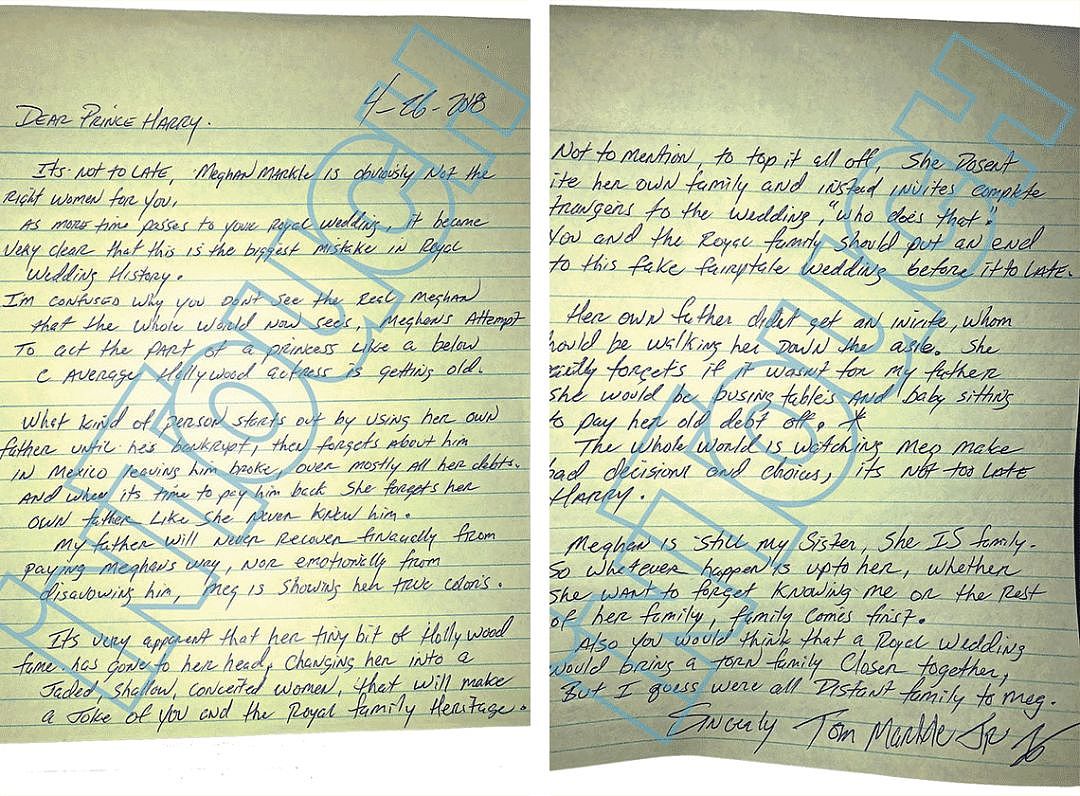 4-26-2018
DEAR PRINCE HARRY.
Its not to LATE, Meghan Markle is obviously Not the
Right women for you.
As more time passes to your Royal wedding, it became
very clear that this is the biggest mistake in Royal
Wedding History.
Im confused why you Don't see the Real Meghan
that the whole world Now sees, Meghans Attempt
To act the PART of a princess Like a below
C AVERAGE Hollywood actress is getting old.
What kind of person starts out by using her own
father until he's bankrupt, then forgets about him
IN Mexico leaving him broke, over mostly all her debts.
AND when its time to pay him back She forgets her
OWN father Like She Never Knew him.
My father will Never Recover finacially from
paying Meghans way, NOR emotionally from
disavowing him, Meg is Showing her true colors.
Its very apparent that her tiny bit of Hollywood
fame has gone to her head, Changing her into a
Jaded, Shallow, conceited women, that will make
a Joke of you and the Royal family Heritage.
Not to mention, to top it all off, She Dosent
ite her own family and instead invites complete
trangers to the wedding, "who does that."
You and the Royal family should put an end
to this fake fairytale wedding before it to LATE.
Her own father didn't get an invite, whom
hould be walking her DOWN the asle. She
forgets if it wasnt for my father
she would be busing tables AND baby sitting
to pay her old debt off.
The whole world is watching Meg make
bad decisions and choices, its NOT too LATE
HARRY.
Meghan is still my Sister, She IS family.
So whatever happen is upto her, whether
She want to forget Knowing me or the Rest
of her family, family comes first.
Also you would think that a Royal wedding
would bring a torn family Closer together,
But I guess were all Distant family to Meg.
Sincerly Tom Markle Jr
INTOUCH
INTOUCH